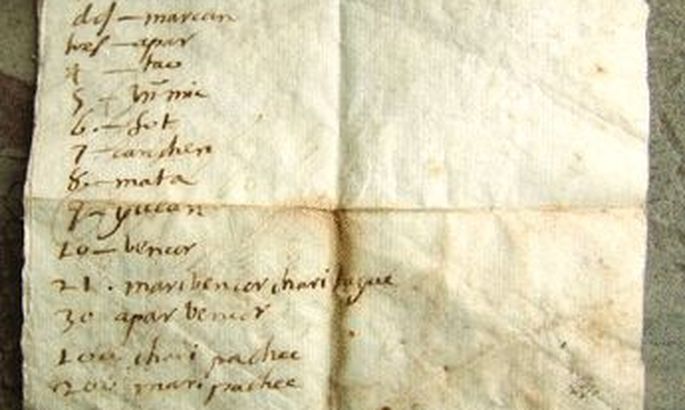 dos — marian
tres — apar
4 — tau
5 — himic
6 — sut
7 — canchen
8 — mata
9 — yucan
10 — bencor
21. maribencor chari tayue
30 apar bencor
100 chari pachac
200 mari pachac